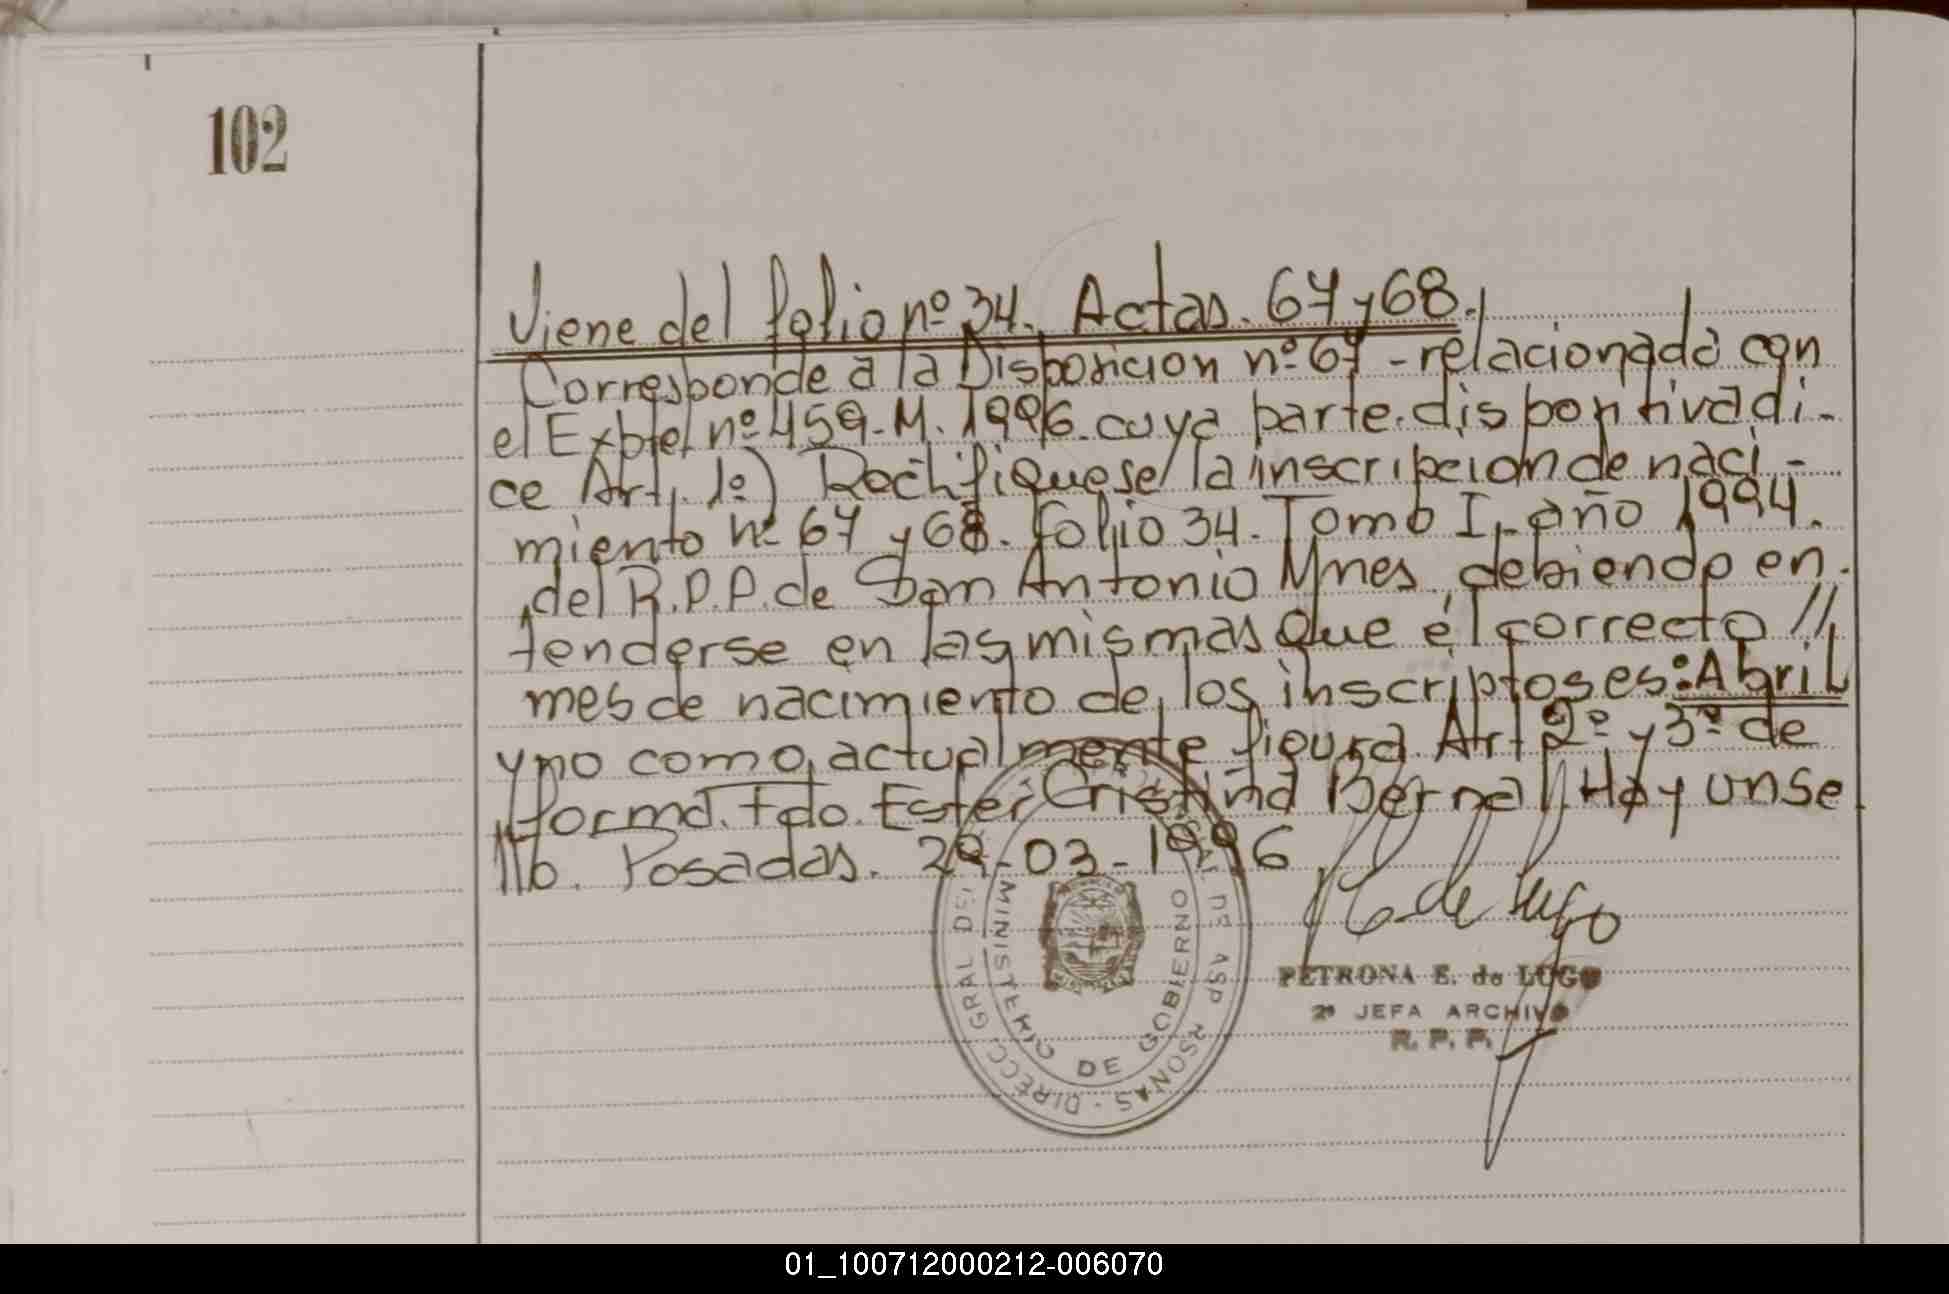 102
Viene del folio nº 34. Actas. 67 y 68.
Corresponde a la Disposicion nº 67 - relacionada con
el Expte nº 459-M. 1996. cuya parte dispositiva di-
ce Art. 1º) Rectifiquese la inscripcion de naci-
miento nº 67 y 68. folio 34. Tomo I. año 1994.
del R.P.P. de San Antonio Mnes. debiendo en-
tenderse en las mismas que él correcto //
mes de nacimiento de los inscriptos es: Abril
y no como actualmente figura. Art 2º y 3º de
forma. Fdo. Ester Cristina Bernal. Hay un se
llo. Posadas. 29-03-1996
DIRECC. GRAL DEL
MINISTERIO DE GOBIERNO
PETRONA E. de LUGO
2ª JEFA ARCHIVO
R. P. P.
01_100712000212-006070